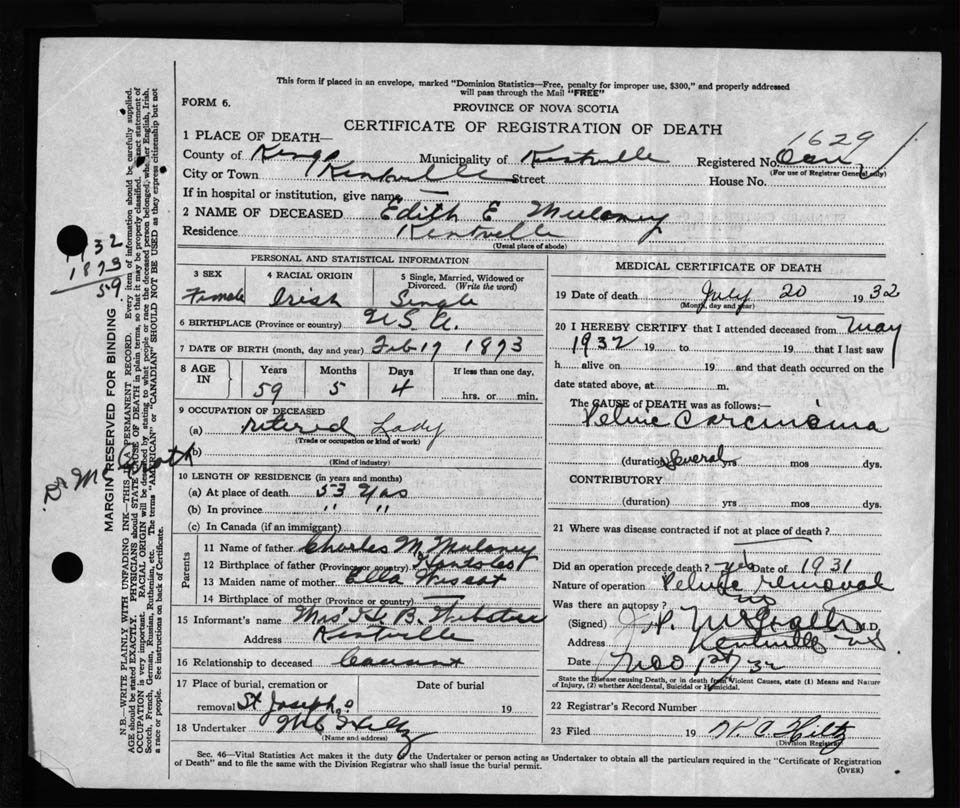 This form if placed in an envelope, marked "Dominion Statistics—Free, penalty for improper use, $300," and properly addressed
will pass through the Mail "FREE"
FORM 6.
PROVINCE OF NOVA SCOTIA
CERTIFICATE OF REGISTRATION OF DEATH
1629
1 PLACE OF DEATH—
County of Kings Municipality of Kentville Registered No.
(For use of Registrar General only)
City or Town Kentville Street House No.
If in hospital or institution, give name
2 NAME OF DECEASED Edith E Mulaney
Residence Kentville
(Usual place of abode)
PERSONAL AND STATISTICAL INFORMATION
3 SEX 4 RACIAL ORIGIN 5 Single, Married, Widowed or
Divorced. (Write the word)
Female Irish Single
6 BIRTHPLACE (Province or country) U.S.A.
7 DATE OF BIRTH (month, day and year) Feb 17 1873
8 AGE IN Years Months Days If less than one day,
59 5 4 hrs. or min.
9 OCCUPATION OF DECEASED
(a) retired Lady
(Trade or occupation or kind of work)
(b)
(Kind of industry)
10 LENGTH OF RESIDENCE (in years and months)
(a) At place of death 53 Yrs
(b) In province " "
(c) In Canada (if an immigrant)
Parents
11 Name of father Charles M. Mulaney
12 Birthplace of father (Province or country)
13 Maiden name of mother Ella
14 Birthplace of mother (Province or country) —
15 Informant's name Mrs H. B. Webster
Address Kentville
16 Relationship to deceased
17 Place of burial, cremation or removal Date of burial
St Josephs 19
18 Undertaker W C Hiltz
(Name and address)
MEDICAL CERTIFICATE OF DEATH
19 Date of death July 20 1932
(Month, day and year)
20 I HEREBY CERTIFY that I attended deceased from May
1932 19 to 19 that I last saw
h alive on 19 and that death occurred on the
date stated above, at m.
The CAUSE of DEATH was as follows:
Pelvic Carcinoma
(duration) Several yrs mos dys.
CONTRIBUTORY
(duration) yrs mos dys.
21 Where was disease contracted if not at place of death?
Did an operation precede death? yes Date of 1931
Nature of operation Pelvic removal
Was there an autopsy? no
(Signed) M.D.
Address Kentville NS
Date Nov 1st/32
State the Disease causing Death, or in death from Violent Causes, state (1) Means and Nature
of Injury, (2) whether Accidental, Suicidal or Homicidal.
22 Registrar's Record Number
23 Filed 19 W. C. Hiltz
(Division Registrar)
Sec. 46—Vital Statistics Act makes it the duty of the Undertaker or person acting as Undertaker to obtain all the particulars required in the "Certificate of Registration
of Death" and to file the same with the Division Registrar who shall issue the burial permit.
(OVER)
1932
1873
59
MARGIN RESERVED FOR BINDING
N.B.—WRITE PLAINLY WITH UNFADING INK—THIS IS A PERMANENT RECORD. Every item of information should be carefully supplied.
AGE should be stated EXACTLY. PHYSICIANS should STATE CAUSE OF DEATH in plain terms, so that it may be properly classified. Exact statement of
OCCUPATION is very important. RACIAL ORIGIN will be described by stating to what people or race the deceased person belonged, whether English, Irish,
Scotch, French, German, Russian, Ruthenian, etc. The terms "AMERICAN" or "CANADIAN" SHOULD NOT BE USED as they express citizenship but not
a race or people. See instructions on back of Certificate.